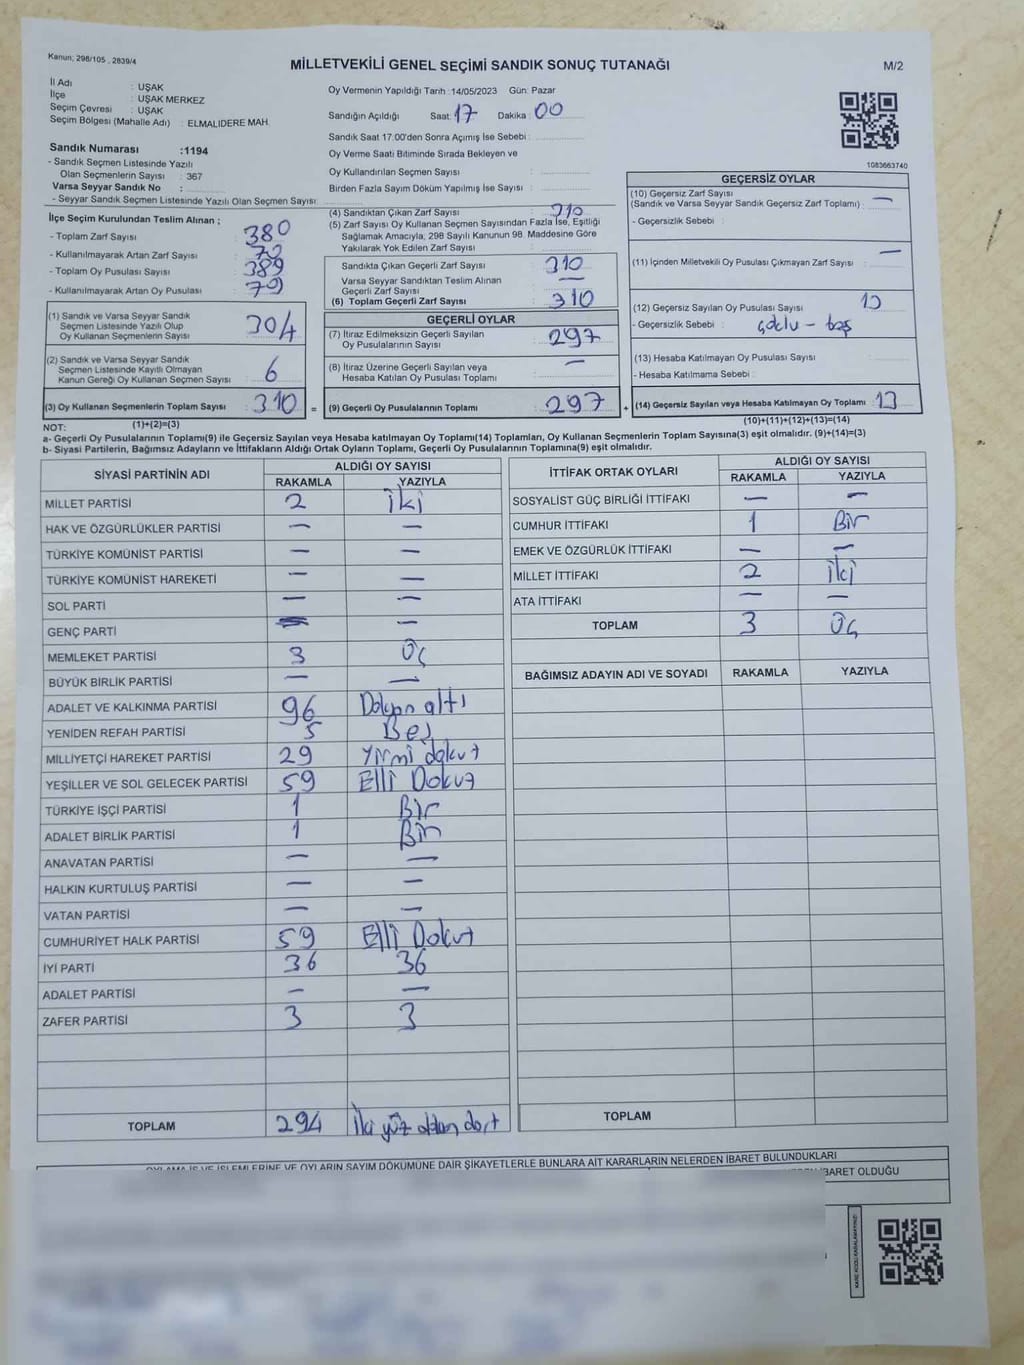 Kanun; 298/105 , 2839/4
MİLLETVEKİLİ GENEL SEÇİMİ SANDIK SONUÇ TUTANAĞI
M/2
İl Adı : UŞAK
İlçe : UŞAK MERKEZ
Seçim Çevresi : UŞAK
Seçim Bölgesi (Mahalle Adı) : ELMALIDERE MAH.
Sandık Numarası :1194
- Sandık Seçmen Listesinde Yazılı
Olan Seçmenlerin Sayısı : 367
Varsa Seyyar Sandık No :
- Seyyar Sandık Seçmen Listesinde Yazılı Olan Seçmen Sayısı:
Oy Vermenin Yapıldığı Tarih :14/05/2023 Gün: Pazar
Sandığın Açıldığı Saat: 17 Dakika : 00
Sandık Saat 17.00'den Sonra Açımış İse Sebebi :
Oy Verme Saati Bitiminde Sırada Bekleyen ve
Oy Kullandırılan Seçmen Sayısı :
Birden Fazla Sayım Döküm Yapılmış İse Sayısı :
1083663740
İlçe Seçim Kurulundan Teslim Alınan ;
- Toplam Zarf Sayısı : 380
- Kullanılmayarak Artan Zarf Sayısı : 70
- Toplam Oy Pusulası Sayısı : 389
- Kullanılmayarak Artan Oy Pusulası : 79
(1) Sandık ve Varsa Seyyar Sandık
Seçmen Listesinde Yazılı Olup
Oy Kullanan Seçmenlerin Sayısı : 304
(2) Sandık ve Varsa Seyyar Sandık
Seçmen Listesinde Kayıtlı Olmayan
Kanun Gereği Oy Kullanan Seçmen Sayısı : 6
(3) Oy Kullanan Seçmenlerin Toplam Sayısı : 310 =
(1)+(2)=(3)
(4) Sandıktan Çıkan Zarf Sayısı : 310
(5) Zarf Sayısı Oy Kullanan Seçmen Sayısından Fazla İse, Eşitliği
Sağlamak Amacıyla; 298 Sayılı Kanunun 98. Maddesine Göre
Yakılarak Yok Edilen Zarf Sayısı :
Sandıkta Çıkan Geçerli Zarf Sayısı : 310
Varsa Seyyar Sandıktan Teslim Alınan
Geçerli Zarf Sayısı : —
(6) Toplam Geçerli Zarf Sayısı : 310
GEÇERLİ OYLAR
(7) İtiraz Edilmeksizin Geçerli Sayılan
Oy Pusulalarının Sayısı : 297
(8) İtiraz Üzerine Geçerli Sayılan veya
Hesaba Katılan Oy Pusulası Toplamı : —
(9) Geçerli Oy Pusulalarının Toplamı : 297 +
GEÇERSİZ OYLAR
(10) Geçersiz Zarf Sayısı
(Sandık ve Varsa Seyyar Sandık Geçersiz Zarf Toplamı) : —
- Geçersizlik Sebebi :
(11) İçinden Milletvekili Oy Pusulası Çıkmayan Zarf Sayısı : —
(12) Geçersiz Sayılan Oy Pusulası Sayısı : 13
- Geçersizlik Sebebi : çoklu - boş
(13) Hesaba Katılmayan Oy Pusulası Sayısı :
- Hesaba Katılmama Sebebi :
(14) Geçersiz Sayılan veya Hesaba Katılmayan Oy Toplamı : 13
(10)+(11)+(12)+(13)=(14)
NOT:
a- Geçerli Oy Pusulalarının Toplamı(9) ile Geçersiz Sayılan veya Hesaba katılmayan Oy Toplamı(14) Toplamları, Oy Kullanan Seçmenlerin Toplam Sayısına(3) eşit olmalıdır. (9)+(14)=(3)
b- Siyasi Partilerin, Bağımsız Adayların ve İttifakların Aldığı Ortak Oyların Toplamı, Geçerli Oy Pusulalarının Toplamına(9) eşit olmalıdır.
SİYASİ PARTİNİN ADI ALDIĞI OY SAYISI
RAKAMLA YAZIYLA
MİLLET PARTİSİ 2 İki
HAK VE ÖZGÜRLÜKLER PARTİSİ — —
TÜRKİYE KOMÜNİST PARTİSİ — —
TÜRKİYE KOMÜNİST HAREKETİ — —
SOL PARTİ — —
GENÇ PARTİ — —
MEMLEKET PARTİSİ 3 Üç
BÜYÜK BİRLİK PARTİSİ — —
ADALET VE KALKINMA PARTİSİ 96 Doksan altı
YENİDEN REFAH PARTİSİ 5 Beş
MİLLİYETÇİ HAREKET PARTİSİ 29 Yirmi dokuz
YEŞİLLER VE SOL GELECEK PARTİSİ 59 Elli Dokuz
TÜRKİYE İŞÇİ PARTİSİ 1 Bir
ADALET BİRLİK PARTİSİ 1 Bir
ANAVATAN PARTİSİ — —
HALKIN KURTULUŞ PARTİSİ — —
VATAN PARTİSİ — —
CUMHURİYET HALK PARTİSİ 59 Elli Dokuz
İYİ PARTİ 36 36
ADALET PARTİSİ — —
ZAFER PARTİSİ 3 3
TOPLAM 294 İki yüz doksan dört
İTTİFAK ORTAK OYLARI ALDIĞI OY SAYISI
RAKAMLA YAZIYLA
SOSYALİST GÜÇ BİRLİĞİ İTTİFAKI — —
CUMHUR İTTİFAKI 1 Bir
EMEK VE ÖZGÜRLÜK İTTİFAKI — —
MİLLET İTTİFAKI 2 İki
ATA İTTİFAKI — —
TOPLAM 3 Üç
BAĞIMSIZ ADAYIN ADI VE SOYADI RAKAMLA YAZIYLA
TOPLAM
OYLAMA İŞ VE İŞLEMLERİNE VE OYLARIN SAYIM DÖKÜMÜNE DAİR ŞİKAYETLERLE BUNLARA AİT KARARLARIN NELERDEN İBARET BULUNDUKLARI
İBARET OLDUĞU
KARE KODU KARALAMAYINIZ!